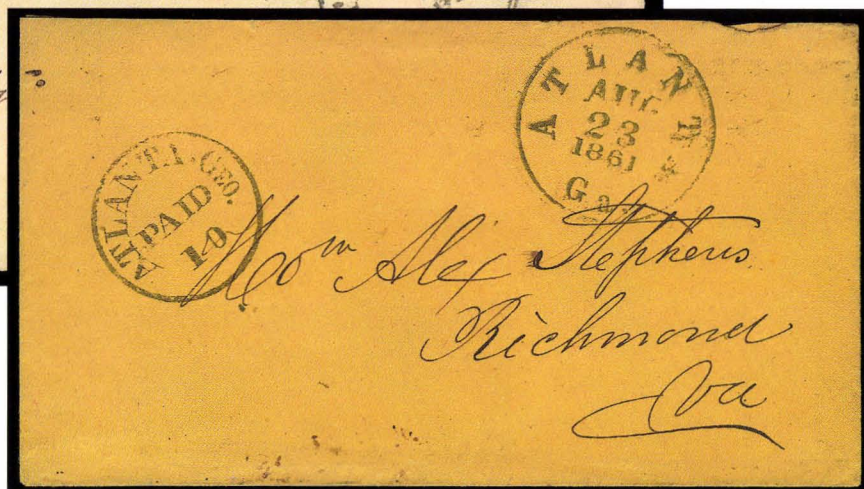 ATLANTA
AUG
23
1861
Ga.
ATLANTA. GEO.
PAID
10
Hon Alex Stephens
Richmond
Va